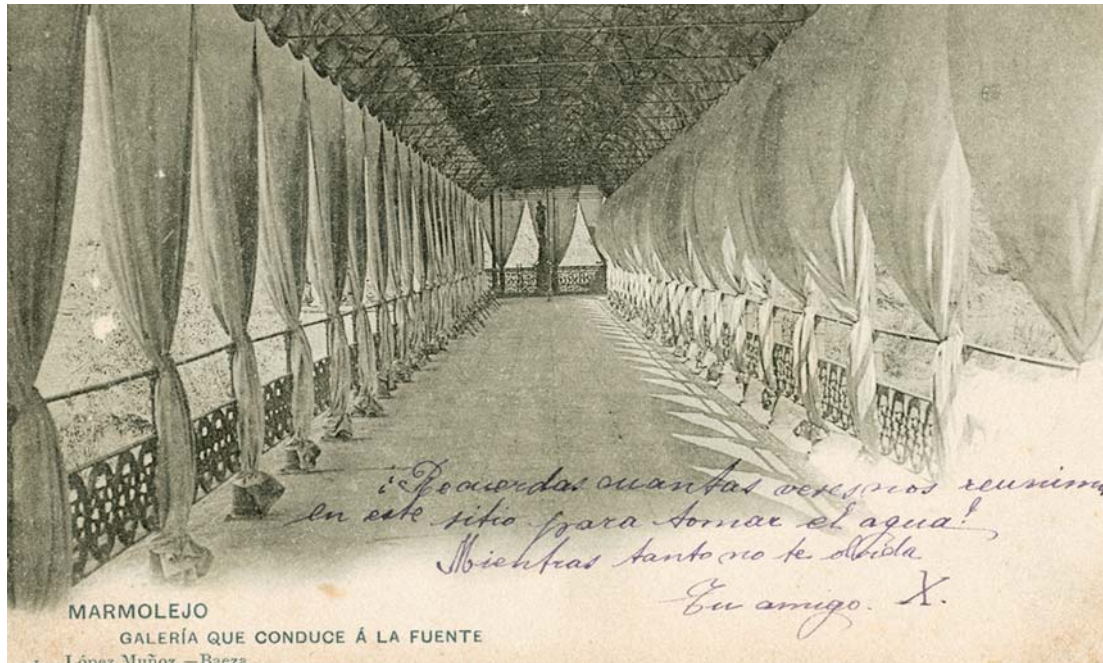 ¡Recuerdas cuantas veses nos reunim
en este sitio para tomar el agua!
Mientras tanto no te olvida
Tu amigo. X.
MARMOLEJO
GALERÍA QUE CONDUCE Á LA FUENTE
López Muñoz.—Baeza